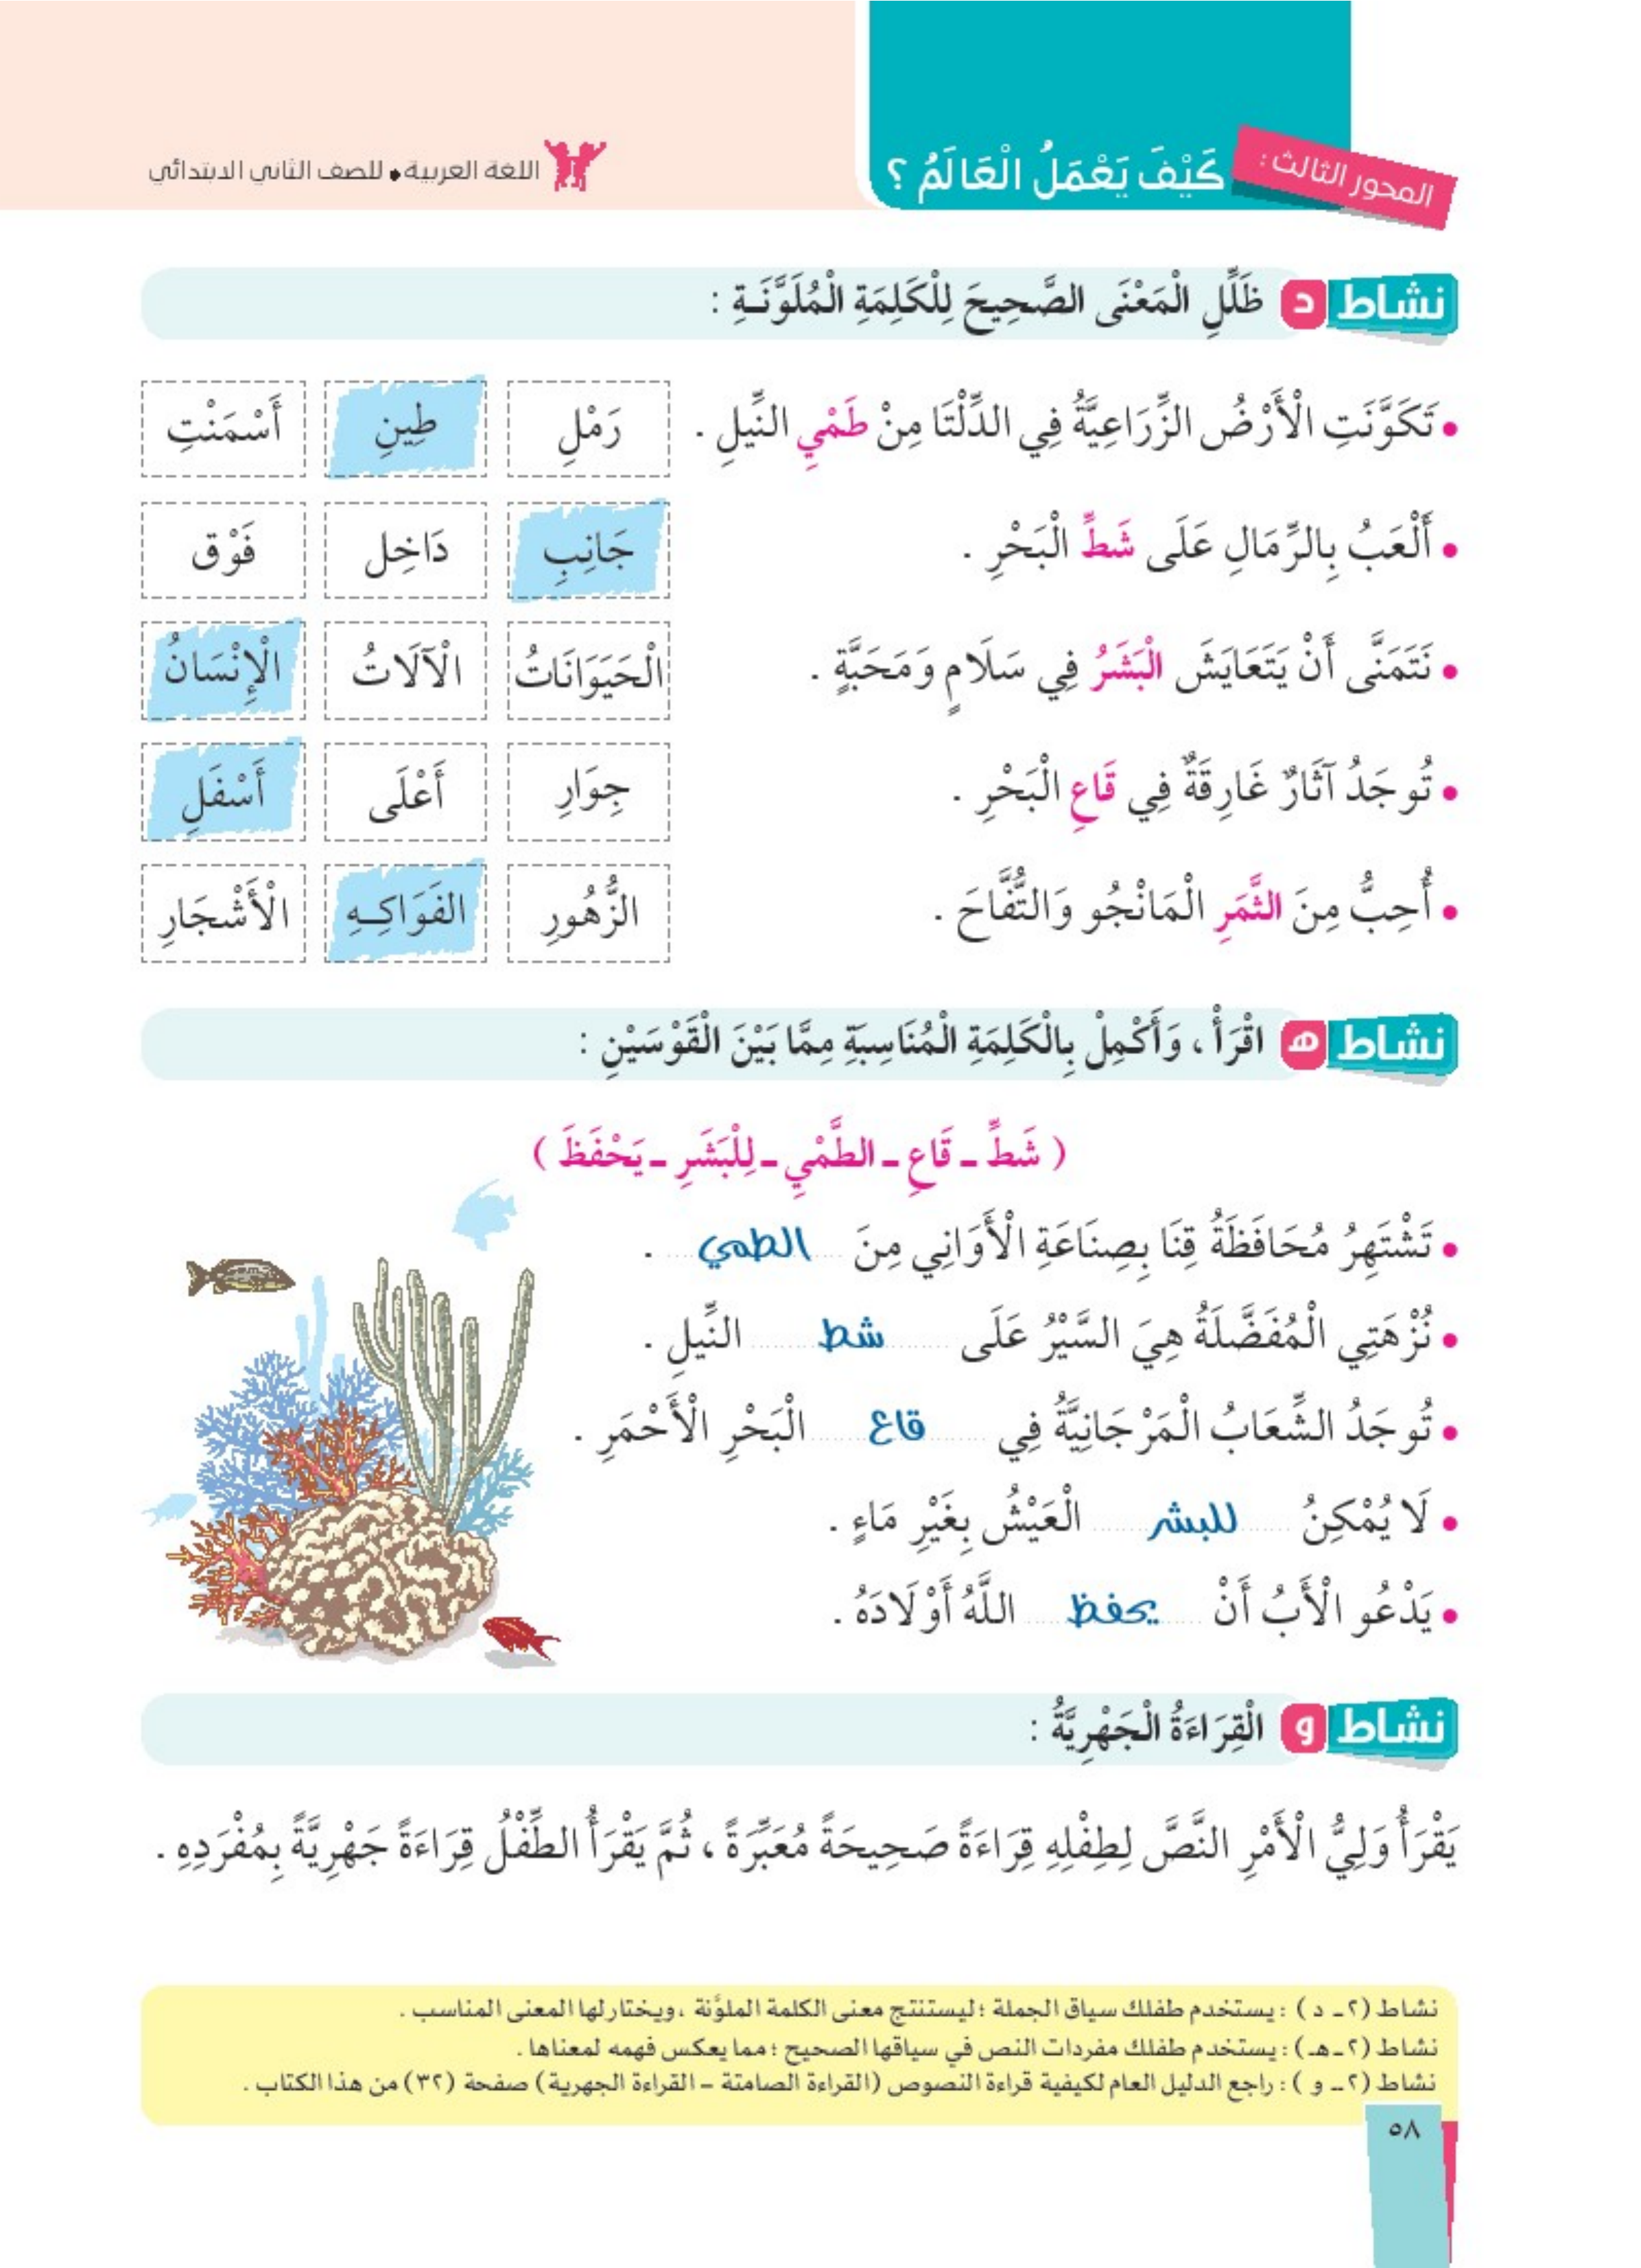 المحور الثالث :
كَيْفَ يَعْمَلُ الْعَالَمُ ؟
اللغة العربية • للصف الثاني الابتدائي
نشاط د ظَلِّلِ الْمَعْنَى الصَّحِيحَ لِلْكَلِمَةِ الْمُلَوَّنَـةِ :
• تَكَوَّنَتِ الْأَرْضُ الزِّرَاعِيَّةُ فِي الدِّلْتَا مِنْ طَمْيِ النِّيلِ . رَمْلِ طِينِ أَسْمَنْتِ
• أَلْعَبُ بِالرِّمَالِ عَلَى شَطِّ الْبَحْرِ . جَانِبِ دَاخِل فَوْق
• نَتَمَنَّى أَنْ يَتَعَايَشَ الْبَشَرُ فِي سَلَامٍ وَمَحَبَّةٍ . الْحَيَوَانَاتُ الْآلَاتُ الْإِنْسَانُ
• تُوجَدُ آثَارٌ غَارِقَةٌ فِي قَاعِ الْبَحْرِ . جِوَارِ أَعْلَى أَسْفَلِ
• أُحِبُّ مِنَ الثَّمَرِ الْمَانْجُو وَالتُّفَّاحَ . الزُّهُورِ الفَوَاكِـهِ الْأَشْجَارِ
نشاط هـ اقْرَأْ ، وَأَكْمِلْ بِالْكَلِمَةِ الْمُنَاسِبَةِ مِمَّا بَيْنَ الْقَوْسَيْنِ :
( شَطِّ ـ قَاعِ ـ الطَّمْيِ ـ لِلْبَشَرِ ـ يَحْفَظَ )
• تَشْتَهِرُ مُحَافَظَةُ قِنَا بِصِنَاعَةِ الْأَوَانِي مِنَ الطمي .
• نُزْهَتِي الْمُفَضَّلَةُ هِيَ السَّيْرُ عَلَى شط النِّيلِ .
• تُوجَدُ الشِّعَابُ الْمَرْجَانِيَّةُ فِي قاع الْبَحْرِ الْأَحْمَرِ .
• لَا يُمْكِنُ للبشر الْعَيْشُ بِغَيْرِ مَاءٍ .
• يَدْعُو الْأَبُ أَنْ يحفظ اللَّهُ أَوْلَادَهُ .
نشاط و الْقِرَاءَةُ الْجَهْرِيَّةُ :
يَقْرَأُ وَلِيُّ الْأَمْرِ النَّصَّ لِطِفْلِهِ قِرَاءَةً صَحِيحَةً مُعَبِّرَةً ، ثُمَّ يَقْرَأُ الطِّفْلُ قِرَاءَةً جَهْرِيَّةً بِمُفْرَدِهِ .
نشاط (٢ـ د ) : يستخدم طفلك سياق الجملة ؛ ليستنتج معنى الكلمة الملوَّنة ، ويختار لها المعنى المناسب .
نشاط (٢ـ هـ) : يستخدم طفلك مفردات النص في سياقها الصحيح ؛ مما يعكس فهمه لمعناها .
نشاط (٢ـ و ) : راجع الدليل العام لكيفية قراءة النصوص (القراءة الصامتة – القراءة الجهرية) صفحة (٣٢) من هذا الكتاب .
٥٨